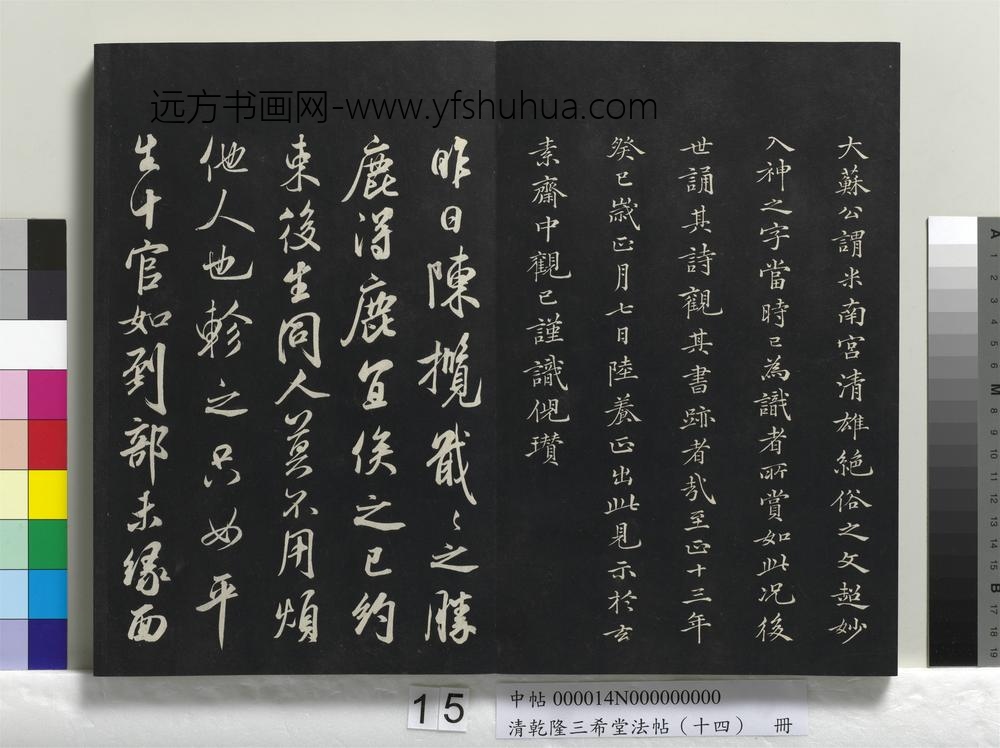 远方书画网-www.yfshuhua.com
大蘇公謂米南宮清雄絕俗之文超妙
入神之字當時已為識者所賞如此況後
世誦其詩觀其書跡者哉至正十三年
癸巳歲正月七日陸養正出此見示於玄
素齋中觀已謹識倪瓚
昨日陳攬戢戢之勝
鹿得鹿宜俟之已約
束後生同人莫不用煩
他人也軫之只如平
生十官如到部未緣面
15
中帖 000014N000000000
清乾隆三希堂法帖（十四） 冊
A 1 2 3 4 5 6 M 8 9 10 11 12 13 14 15 B 17 18 19